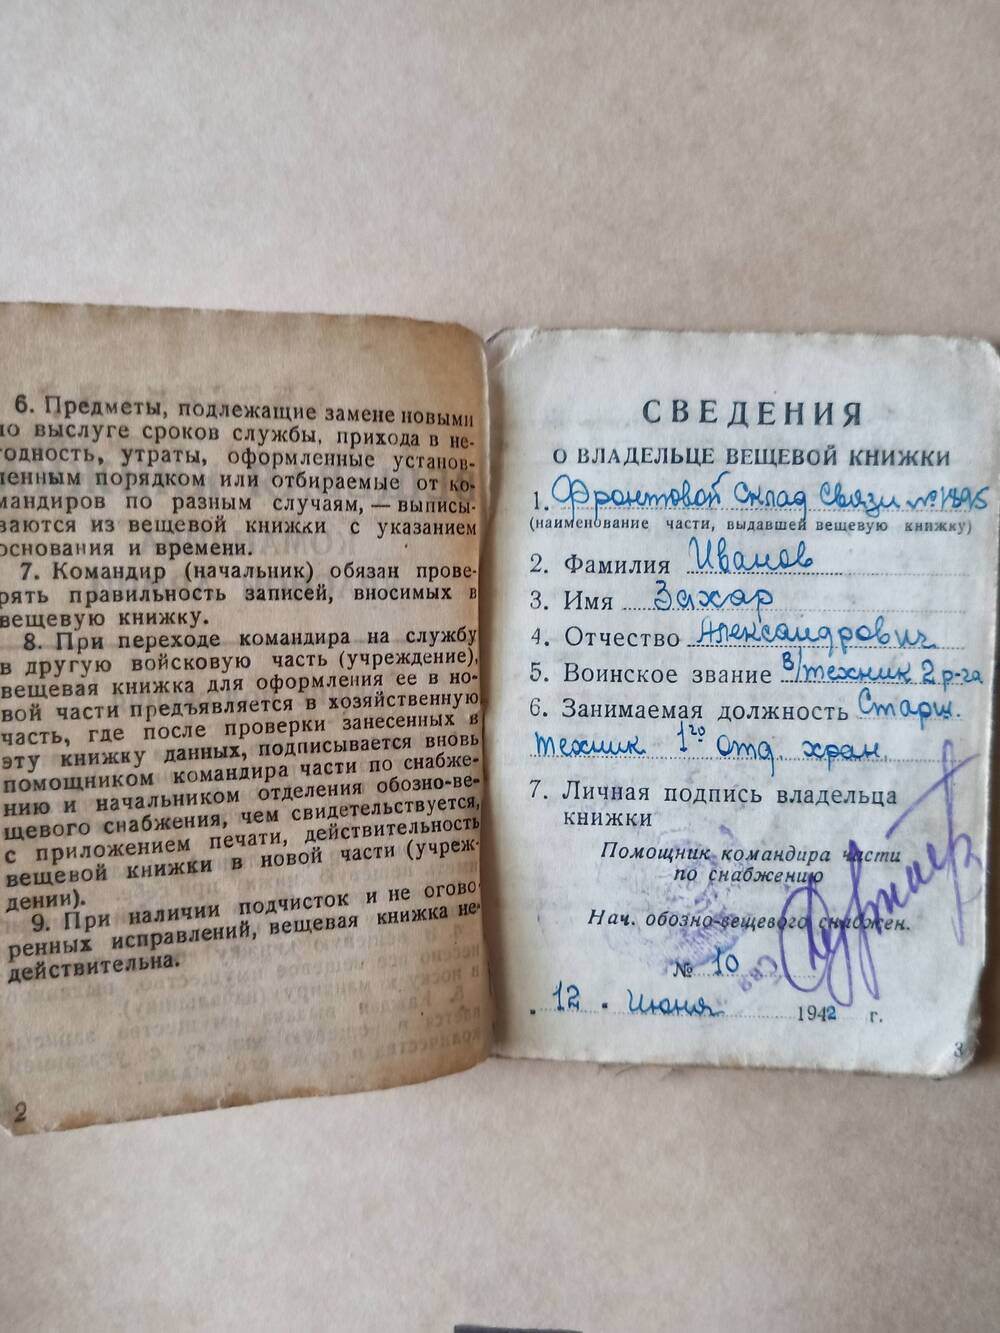 6. Предметы, подлежащие замене новыми
по выслуге сроков службы, прихода в не-
годность, утраты, оформленные установ-
ленным порядком или отбираемые от ко-
мандиров по разным случаям, — выписы-
ваются из вещевой книжки с указанием
основания и времени.
7. Командир (начальник) обязан прове-
рять правильность записей, вносимых в
вещевую книжку.
8. При переходе командира на службу
в другую войсковую часть (учреждение),
вещевая книжка для оформления ее в но-
вой части предъявляется в хозяйственную
часть, где после проверки занесенных в
эту книжку данных, подписывается вновь
помощником командира части по снабже-
нию и начальником отделения обозно-ве-
щевого снабжения, чем свидетельствуется,
с приложением печати, действительность
вещевой книжки в новой части (учреж-
дении).
9. При наличии подчисток и не огово-
ренных исправлений, вещевая книжка не-
действительна.
2
СВЕДЕНИЯ
О ВЛАДЕЛЬЦЕ ВЕЩЕВОЙ КНИЖКИ
1. Фронтовой Склад Связи № 1895
(наименование части, выдавшей вещевую книжку)
2. Фамилия Иванов
3. Имя Захар
4. Отчество Александрович
5. Воинское звание в/техник 2 р-га
6. Занимаемая должность Старш.
техник 1го отд. хран.
7. Личная подпись владельца
книжки
Помощник командира части
по снабжению
Нач. обозно-вещевого снабжен.
№ 10
12 . Июня 1942 г.
3